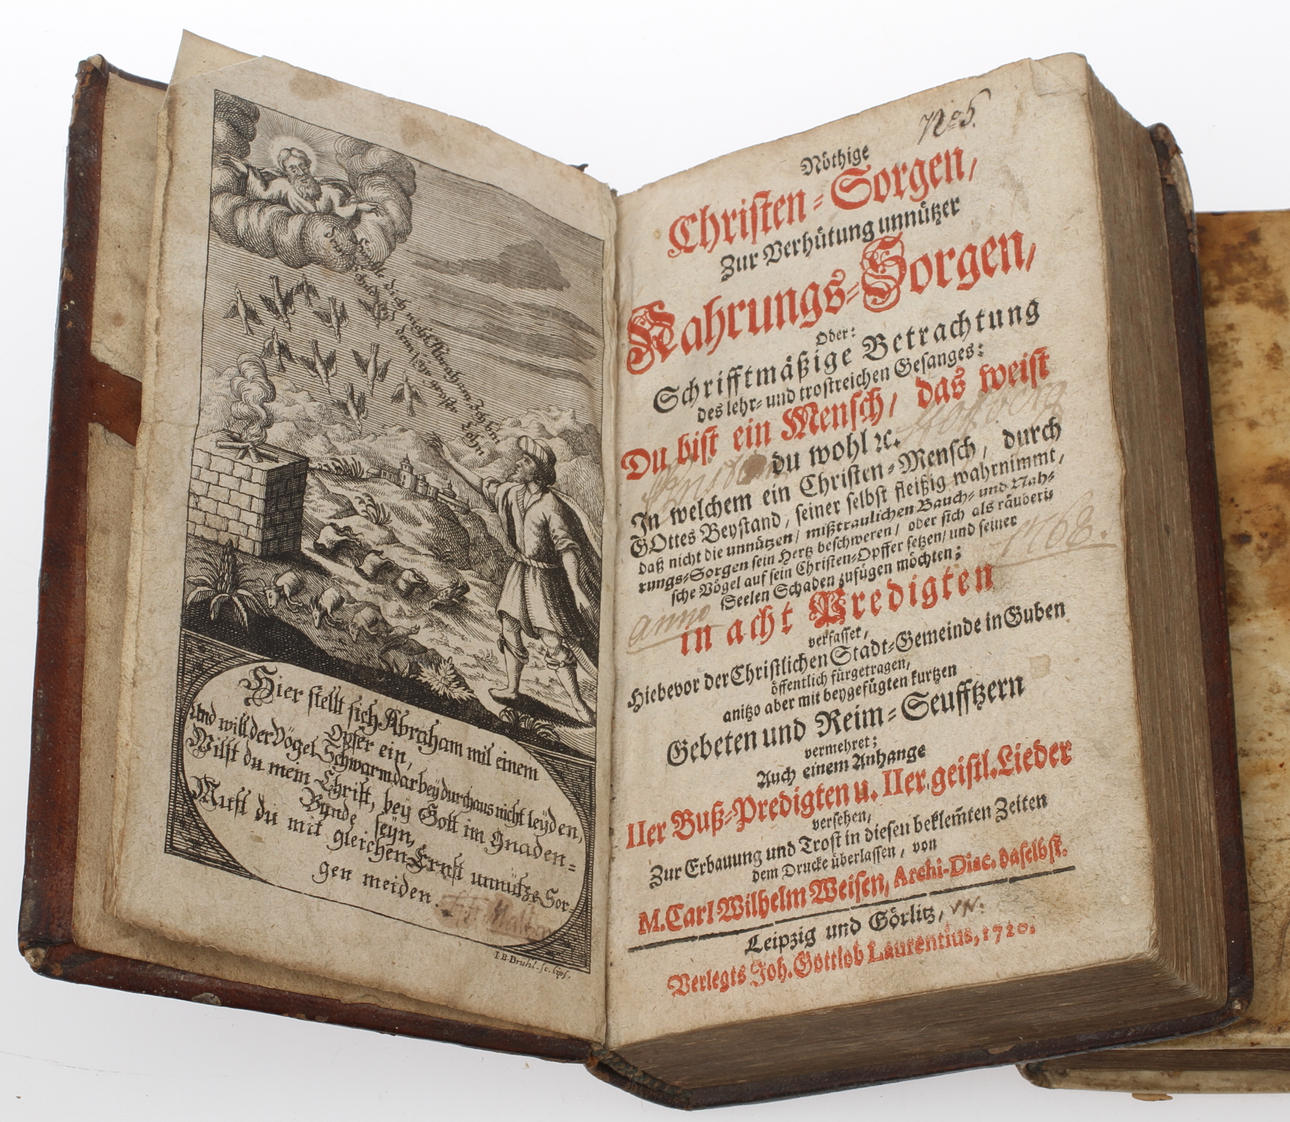 Fürchte dich nicht Abraham, Ich bin
dein Schild und dein sehr grosser Lohn
Hier stellt sich Abraham mit einem
Opfer ein,
und will der Vögel Schwarm darbey durchaus nicht leyden,
Wilst du mein Christ, bey Gott im Gnaden-
Bunde seyn,
Must du mit gleichen Ernst unnütze Sor-
gen meiden.
I. B. Brühl. sc. Lips.
Nöthige
Christen-Sorgen,
Zur Verhütung unnützer
Nahrungs-Sorgen,
Oder:
Schrifftmäßige Betrachtung
des lehr- und trostreichen Gesanges:
Du bist ein Mensch, das weist
du wohl ꝛc.
In welchem ein Christen-Mensch, durch
GOttes Beystand, seiner selbst fleißig wahrnimmt,
daß nicht die unnützen, mißtraulichen Bauch- und Nah-
rungs-Sorgen sein Hertz beschweren, oder sich als räuberi-
sche Vögel auf sein Christen-Opffer setzen, und seiner
Seelen Schaden zufügen möchten;
in acht Predigten
verfasset,
Hiebevor der Christlichen Stadt-Gemeinde in Guben
öffentlich fürgetragen,
anitzo aber mit beygefügten kurtzen
Gebeten und Reim-Seufftzern
vermehret;
Auch einem Anhange
IIer Buß-Predigten u. IIer geistl. Lieder
versehen,
Zur Erbauung und Trost in diesen beklem̃ten Zeiten
dem Drucke überlassen, von
M. Carl Wilhelm Weisen, Archi-Diac. daselbst.
Leipzig und Görlitz,
Verlegts Joh. Gottlob Laurentius, 1720.
anno 1768.